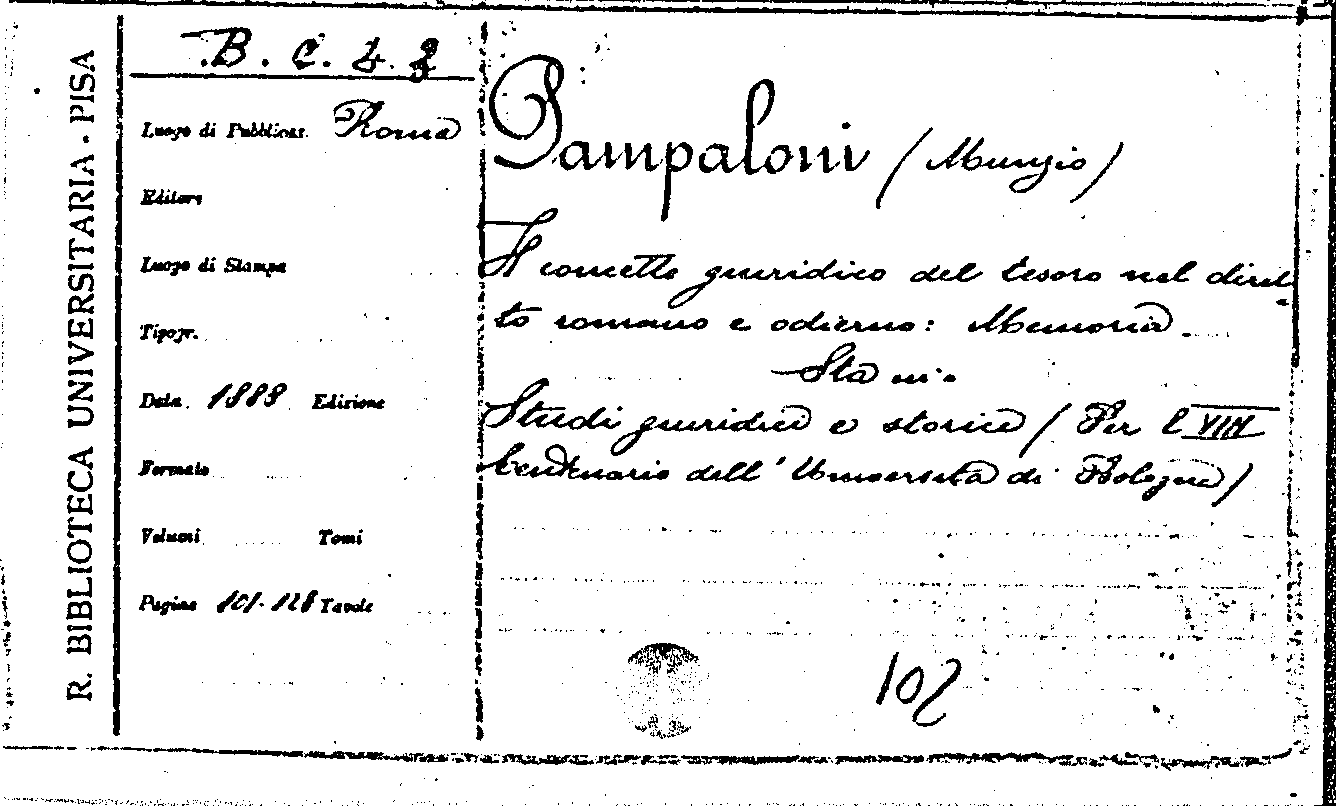 R. BIBLIOTECA UNIVERSITARIA - PISA
B. C. 4. 2
Luogo di Pubblicaz. Roma
Editore
Luogo di Stampa
Tipogr.
Data 1888 Edizione
Formato
Volumi Tomi
Pagine 101-128 Tavole
Pampaloni (Munzio)
Il concetto giuridico del tesoro nel dirit-
to romano e odierno: Memoria
Sta in:
Studi giuridici e storici (Per l'VIII
Centenario dell'Università di Bologna)
102